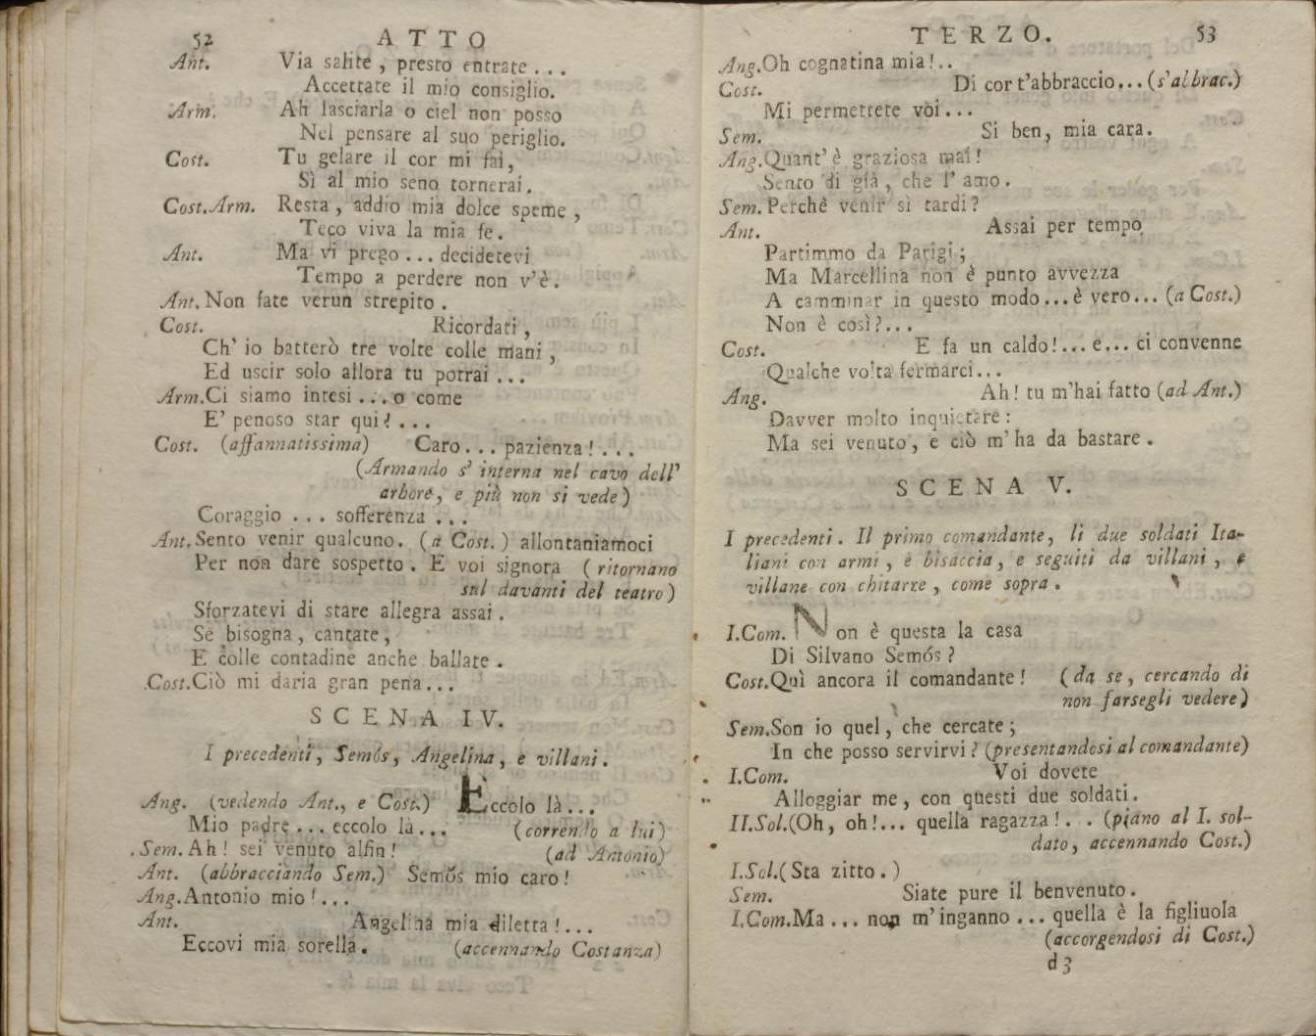 52 ATTO
Ant. Via salite, presto entrate...
Accettate il mio consiglio.
Arm. Ah lasciarla o ciel non posso
Nel pensare al suo periglio.
Cost. Tu gelare il cor mi fai,
Sì al mio seno tornerai.
Cost. Arm. Resta, addio mia dolce speme,
Teco viva la mia fe.
Ant. Ma vi prego... decidetevi
Tempo a perdere non v'è.
Ant. Non fate verun strepito.
Cost. Ricordati,
Ch' io batterò tre volte colle mani,
Ed uscir solo allora tu potrai...
Arm. Ci siamo intesi... o come
E' penoso star qui!...
Cost. (affannatissima) Caro... pazienza!...
(Armando s' interna nel cavo dell'
arbore, e più non si vede)
Coraggio... sofferenza...
Ant. Sento venir qualcuno. (a Cost.) allontaniamoci
Per non dare sospetto. E voi signora (ritornano
sul davanti del teatro)
Sforzatevi di stare allegra assai.
Se bisogna, cantate,
E colle contadine anche ballate.
Cost. Ciò mi daria gran pena...
SCENA IV.
I precedenti, Semós, Angelina, e villani.
Ang. (vedendo Ant., e Cost.) Èccolo là...
Mio padre... eccolo là... (correndo a lui)
Sem. Ah! sei venuto alfin! (ad Antonio)
Ant. (abbracciando Sem.) Semós mio caro!
Ang. Antonio mio!...
Ant. Angelina mia diletta!...
Eccovi mia sorella. (accennando Costanza)
TERZO. 53
Ang. Oh cognatina mia!..
Cost. Di cor t'abbraccio... (s'abbrac.)
Mi permettete voi...
Sem. Si ben, mia cara.
Ang. Quant' è graziosa mai!
Sento di già, che l' amo.
Sem. Perchè venir si tardi?
Ant. Assai per tempo
Partimmo da Parigi;
Ma Marcellina non è punto avvezza
A camminar in questo modo... è vero... (a Cost.)
Non è così?...
Cost. E fa un caldo!... e... ci convenne
Qualche volta fermarci...
Ang. Ah! tu m'hai fatto (ad Ant.)
Davver molto inquietare:
Ma sei venuto, e ciò m'ha da bastare.
SCENA V.
I precedenti. Il primo comandante, li due soldati Ita-
liani con armi, e bisaccia, e seguiti da villani, e
villane con chitarre, come sopra.
I.Com. Non è questa la casa
Di Silvano Semós?
Cost. Quì ancora il comandante! (da se, cercando di
non farsegli vedere)
Sem. Son io quel, che cercate;
In che posso servirvi? (presentandosi al comandante)
I.Com. Voi dovete
Alloggiar me, con questi due soldati.
II.Sol. (Oh, oh!... quella ragazza!... (piano al I. sol-
dato, accennando Cost.)
I.Sol. (Sta zitto.)
Sem. Siate pure il benvenuto.
I.Com. Ma... non m'inganno... quella è la figliuola
(accorgendosi di Cost.)
d3